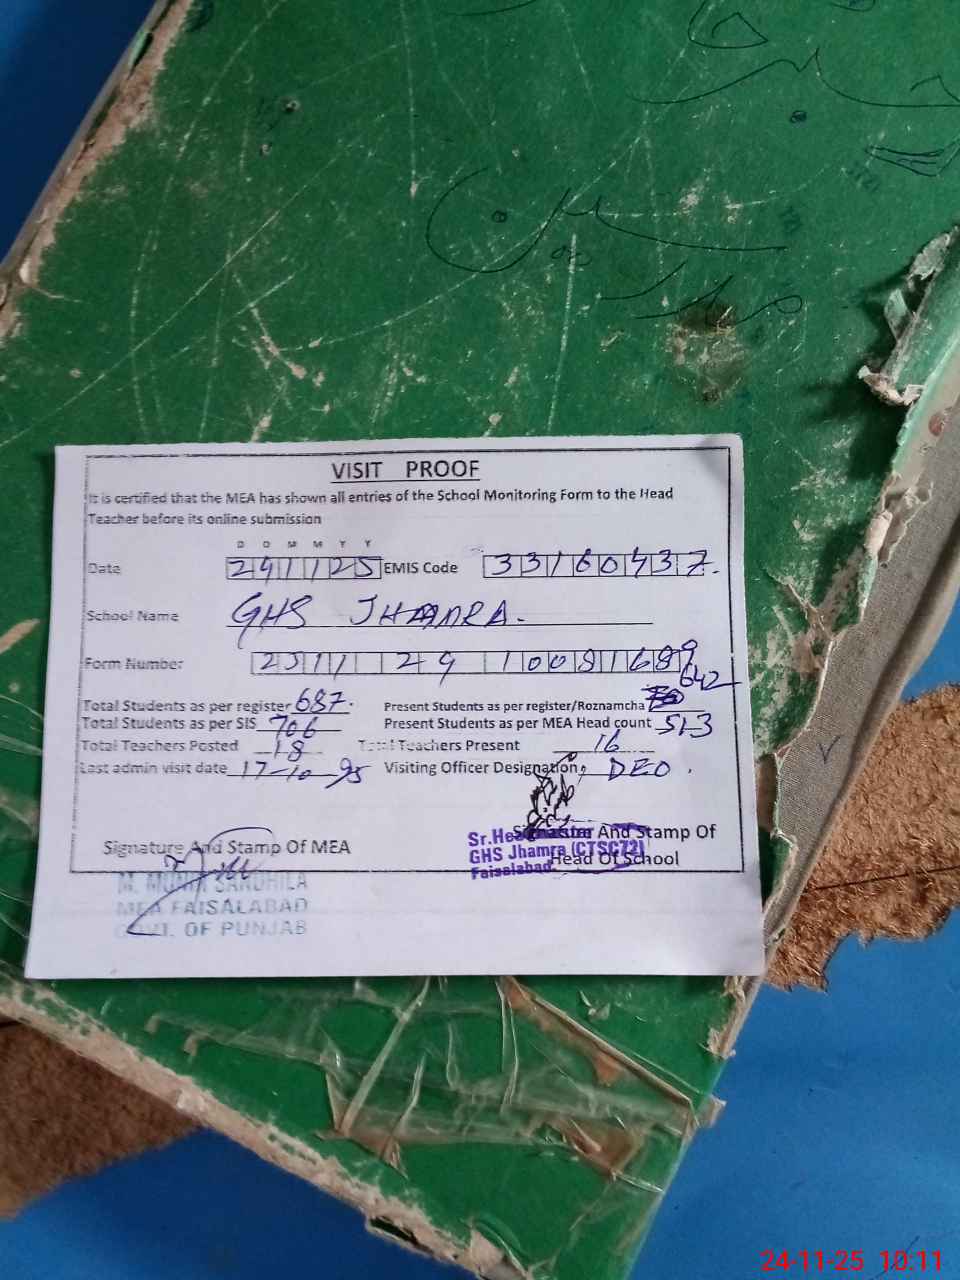 VISIT PROOF
It is certified that the MEA has shown all entries of the School Monitoring Form to the Head
Teacher before its online submission
D D M M Y Y
Date 241125 EMIS Code 33160437.
School Name GHS JHAMRA.
Form Number
642
Total Students as per register 687. Present Students as per register/Roznamcha
Total Students as per SIS 706 Present Students as per MEA Head count 513
Total Teachers Posted 18 Total Teachers Present 16
Last admin visit date 17-10-95 Visiting Officer Designation, DEO.
Signature And Stamp Of MEA
Signature And Stamp Of
Head Of School
Sr.Headmaster
GHS Jhamra (CTSC72)
Faisalabad.
M. MUNIR SANDHILA
MEA FAISALABAD
GOVT. OF PUNJAB
24-11-25 10:11